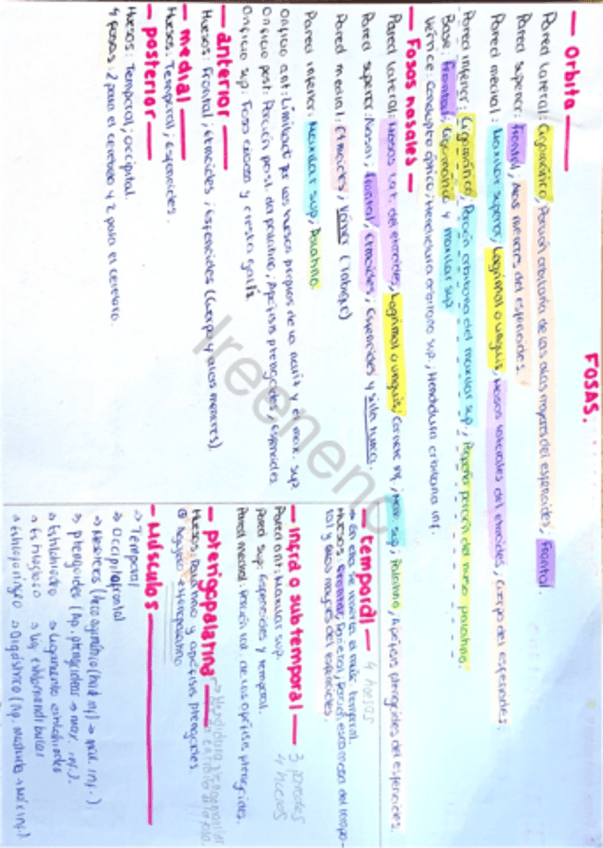 FOSAS.
— Orbita —
Pared Lateral: Cigomático, Porción orbitaria de las alas mayores del esfenoides, Frontal.
Pared superior: Frontal, Alas menores del esfenoides.
Pared medial: Maxilar superior, Lagrimal o unguis, Masas laterales del etmoides, cuerpo del esfenoides.
Pared inferior: Cigomático, Porción orbitaria del maxilar sup, Pequeña porción del hueso palatino.
Base: Frontal, Cigomático y maxilar sup
Vértice: Conducto óptico, Hendidura orbitaria sup., Hendidura orbitaria inf.
— Fosas nasales —
Pared Lateral: Masas Lat. del etmoides, Lagrimal o unguis, Cornete inf, Max sup, Palatino, Apófisis pterigoides del esfenoides.
Pared superior: Nasal, Frontal, Etmoides, Esfenoides y silla turca.
Pared medial: Etmoides, Vómer (Tabique)
Pared inferior: Maxilar sup, Palatino.
Orificio ant: Limitado por los huesos propios de la nariz y el max. sup.
Orificio post: Porción post. del palatino, Apófisis pterigoides, esfenoides
Orificio sup: Fosa craneo y cresta galli.
— anterior —
Huesos: Frontal, etmoides, esfenoides (cuerpo y alas menores)
— medial —
Huesos: Temporal, Esfenoides.
— posterior —
Huesos: Temporal, occipital.
4 fosas: 2 para el cerebro y 2 para el cerebelo.
temporal — 4 huesos
→ En ella se inserta el músc temporal.
Huesos: Frontal, Parietal, porción escamosa del tempo-
ral y alas mayores del esfenoides.
— infra o subtemporal — 3 paredes
4 huesos
Pared ant: Maxilar sup.
Pared sup: Esfenoides y temporal.
Pared medial: Porción lat. de las apófisis pterigoides.
— pterigopalatina —
Huesos: Palatino y apófisis pterigoides
— Músculos —
→ Temporal
→ Occipitofrontal
→ Estilohioideo → Ligamento estilohioideo
Ireenenc